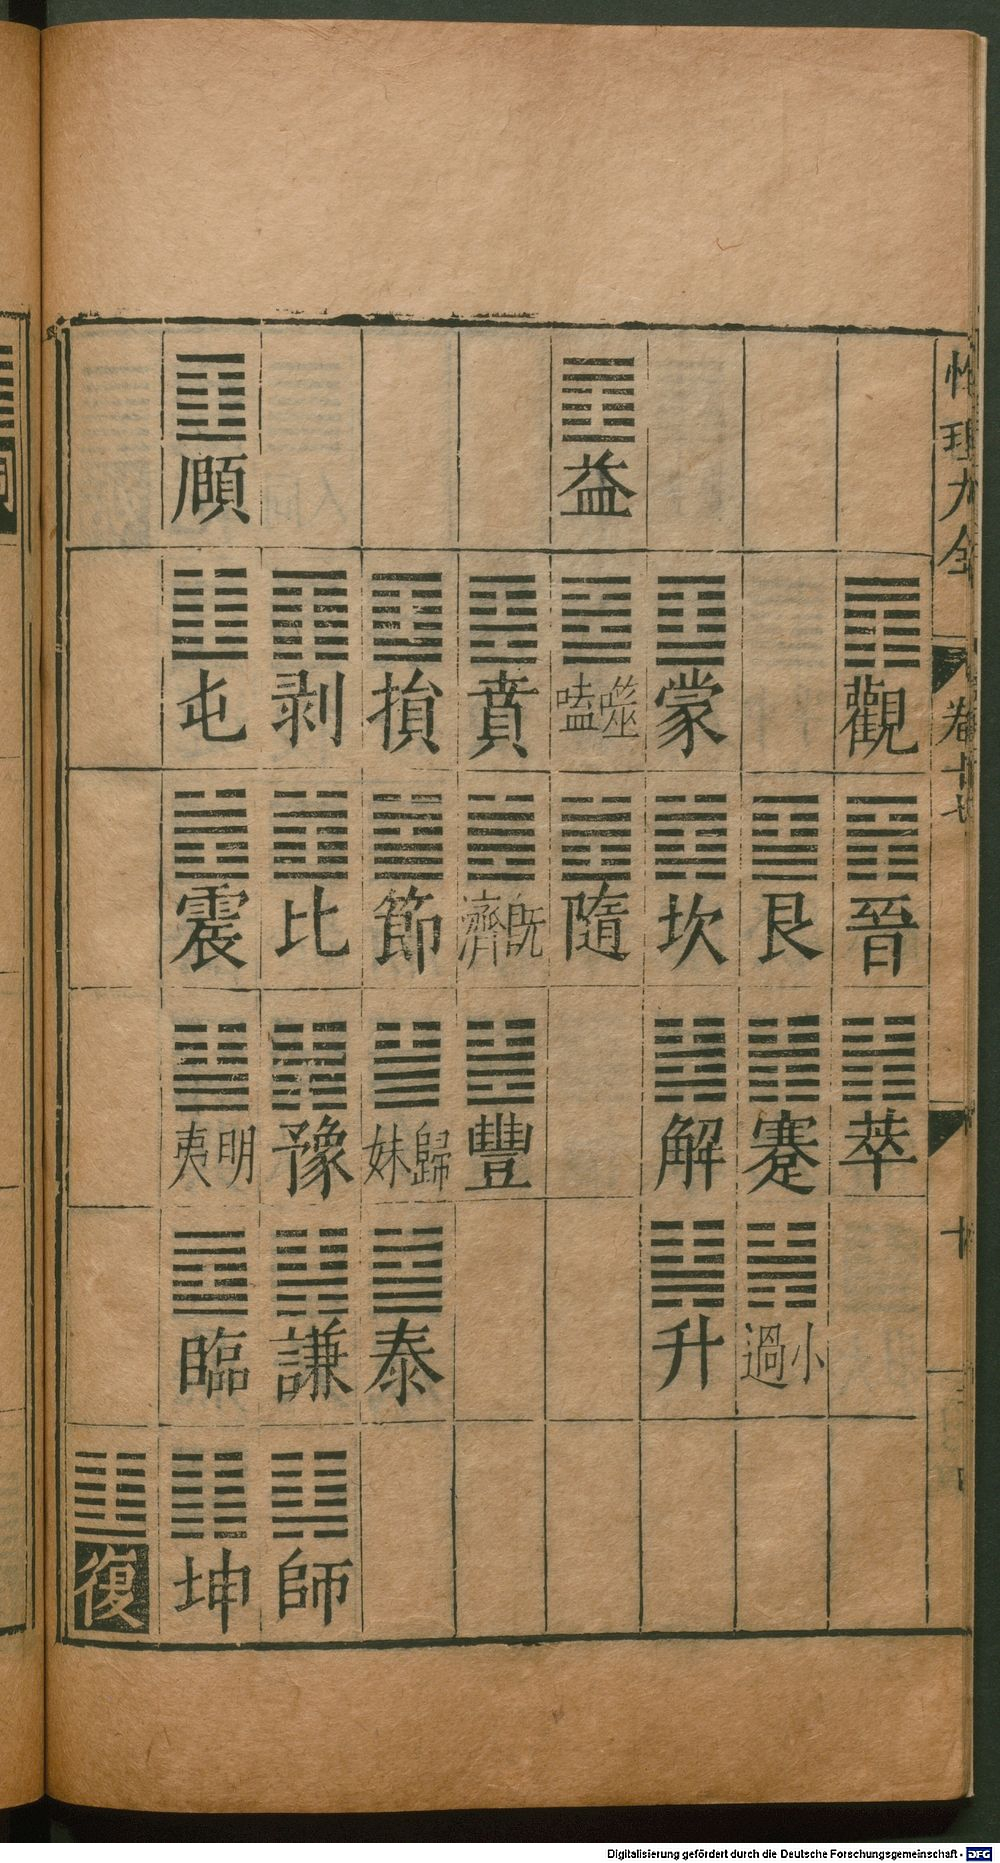 性理大全
卷十七
十
觀 晉 萃
艮 蹇 小過
蒙 坎 解 升
益 噬嗑 隨
賁 既濟 豐
損 節 歸妹 泰
剥 比 豫 謙 師
頤 屯 震 明夷 臨 坤
復
Digitalisierung gefördert durch die Deutsche Forschungsgemeinschaft - DFG